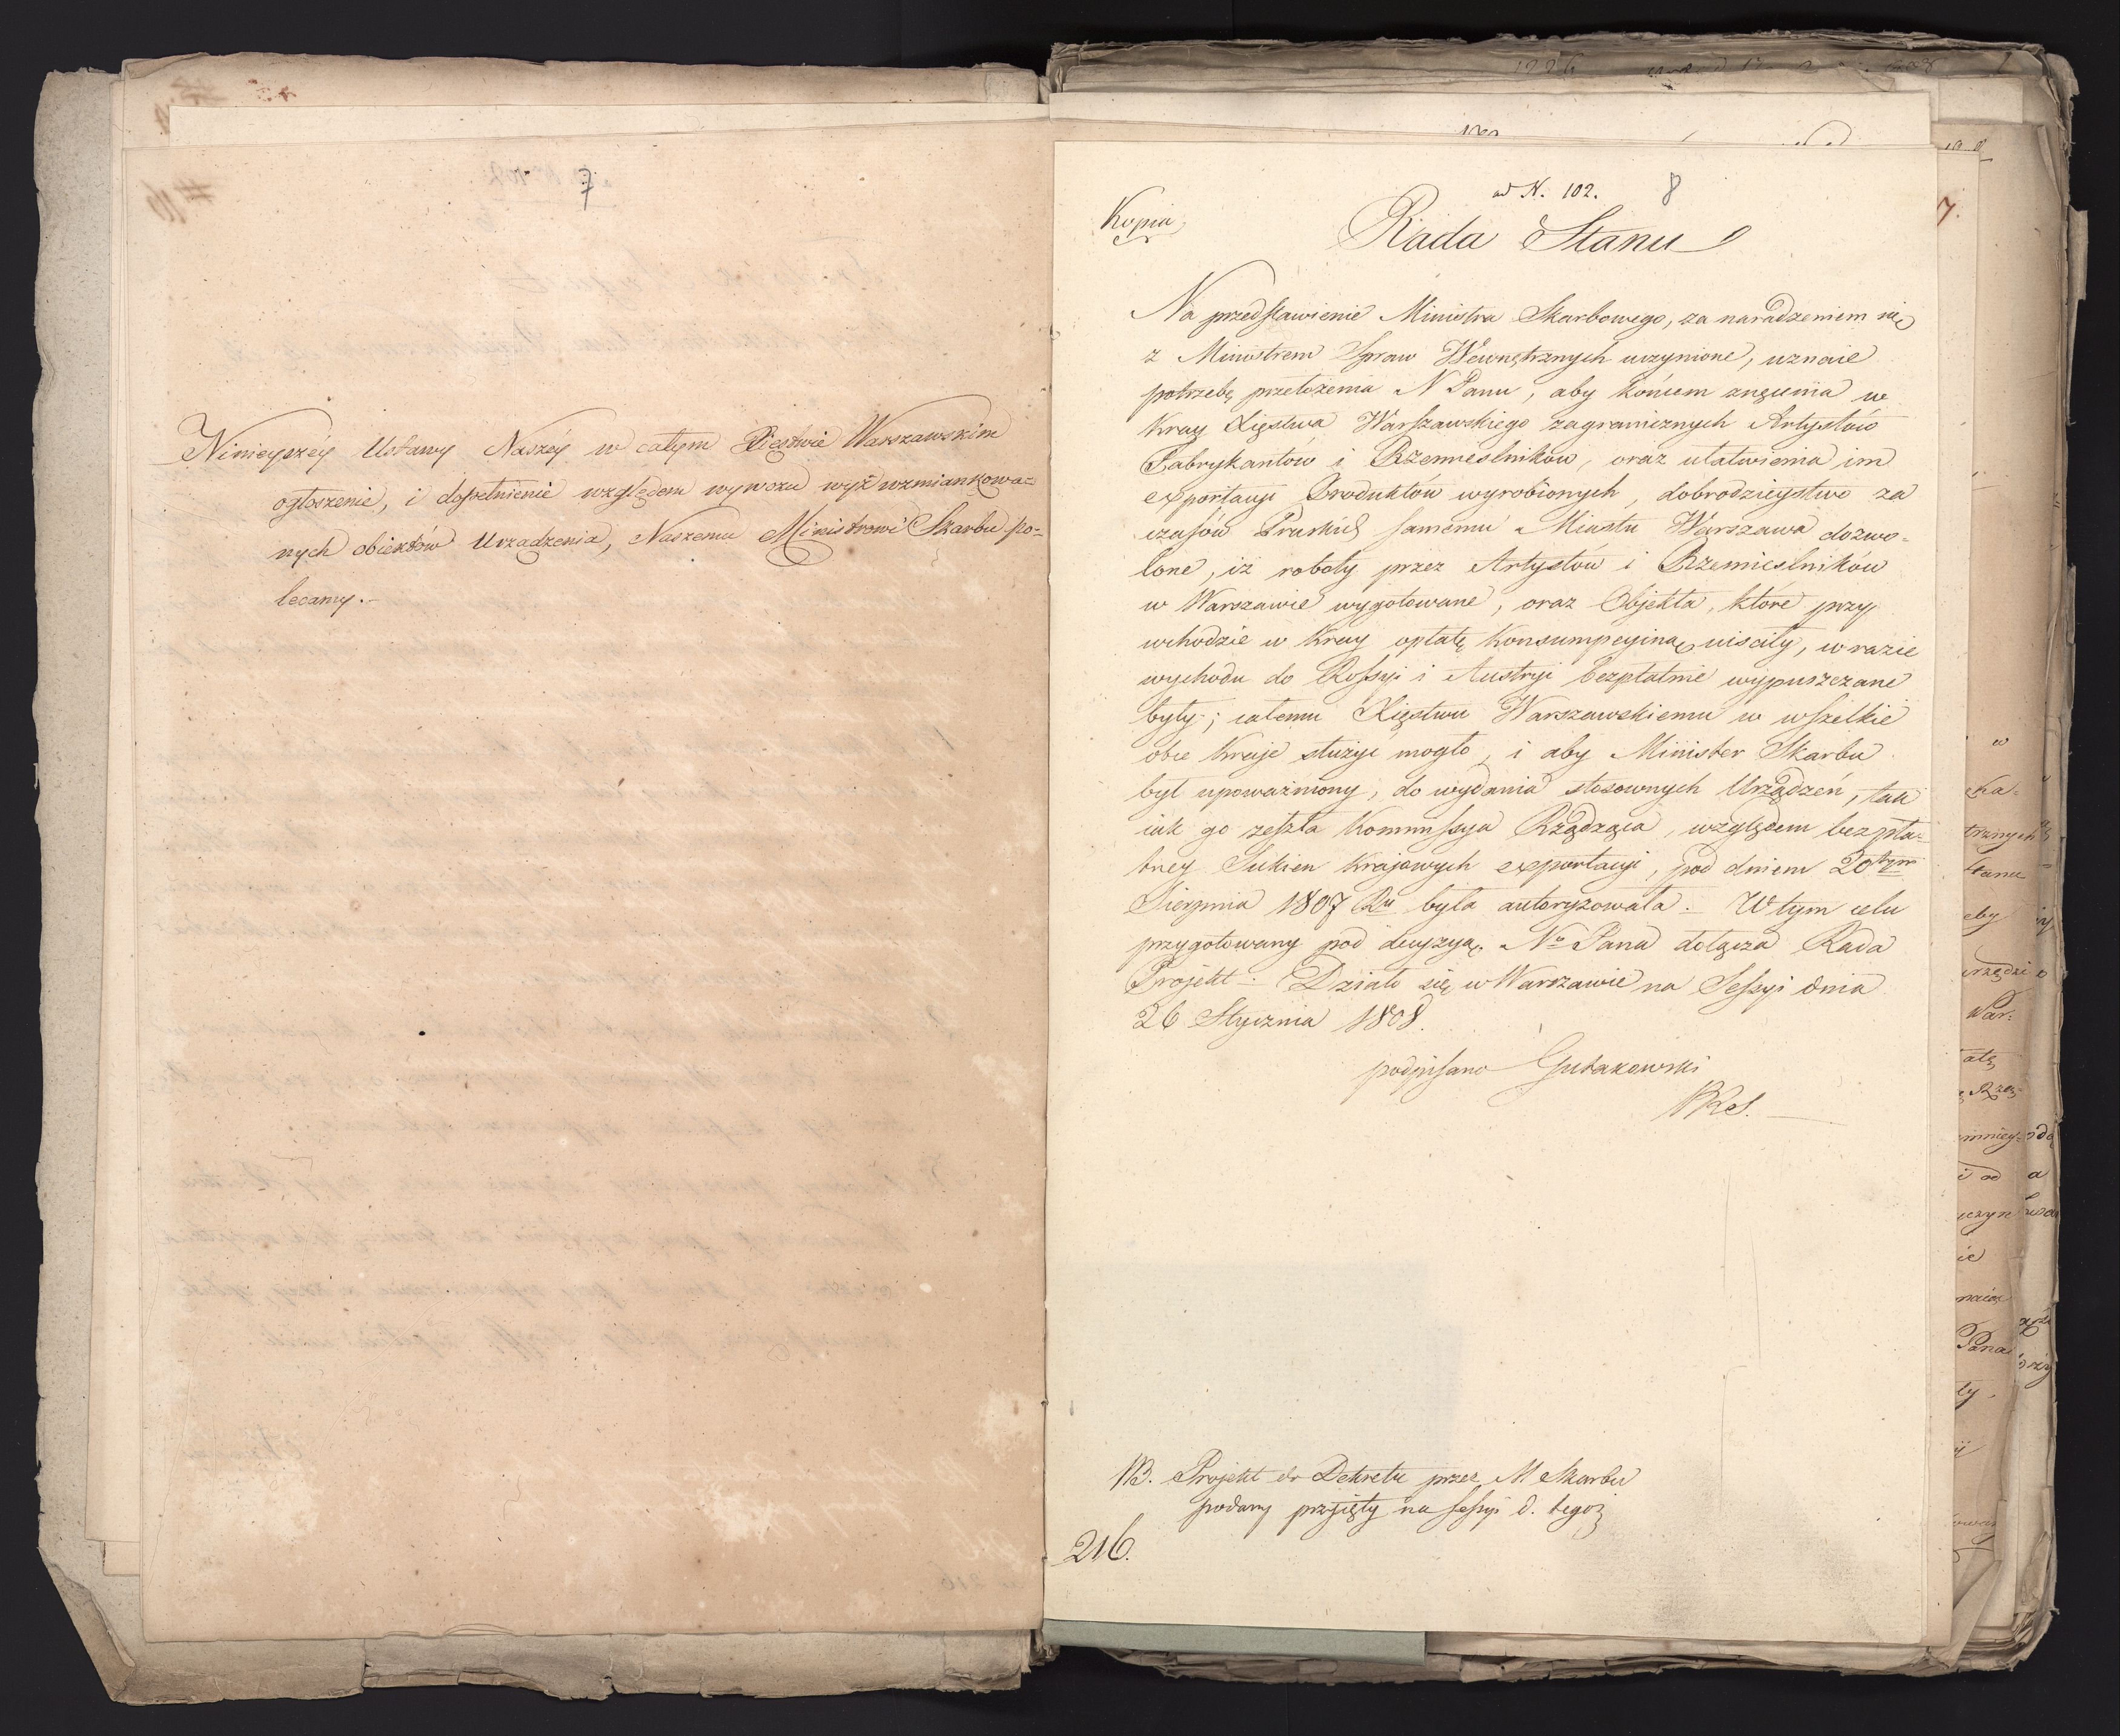 7
Ninieyszéy Ustawy Naszéy w całym Xięstwie Warszawskim
ogłoszenie, i dopełnienie względem wywozu wyż wzmiankowa=
nych obiektów Urządzenia, Naszemu Ministrowi Skarbu po=
lecamy.-
ad N. 102. 8
Kopia
Rada Stanu
Na przedstawienie Ministra Skarbowego, za naradzeniem się
z Ministrem Spraw Wewnętrznych uczynione, uznaie
potrzebę przełożenia N Panu, aby końcem znęcenia w
Kray Xięstwa Warszawskiego zagranicznych Artystów
Fabrykantów i Rzemieślników, oraz ułatwienia im
exportacyi Produktów wyrobionych, dobrodzieystwo za
czasów Pruskich samemu Miastu Warszawa dozwo=
lone, iż roboty przez Artystów i Rzemieślników
w Warszawie wygotowane, oraz Objekta, które przy
wchodzie w Kray opłatę Konsumpcyiną uiściły, w razie
wychodu do Rossyi i Austryi bezpłatnie wypuszczane
były; całemu Xięstwu Warszawskiemu w wszelkie
obce Kraje służyć mogło, i aby Minister Skarbu
był upoważniony, do wydania stosownych Urządzeń, tak
iak go zeszła Kommissya Rządząca, względem bezpła=
tney Sukien Krajowych exportacyi, pod dniem 20tym
Sierpnia 1807 Ru była autoryzowała. W tym celu
przygotowany pod decyzyą No Pana dołącza Rada
Projekt. Działo się w Warszawie na Sessyi dnia
26 Stycznia 1808.
podpisano Gutakowski
PRS.
NB. Projekt do Dekretu przez M Skarbu
podany przyięty na sessyi d. tegoż
216.